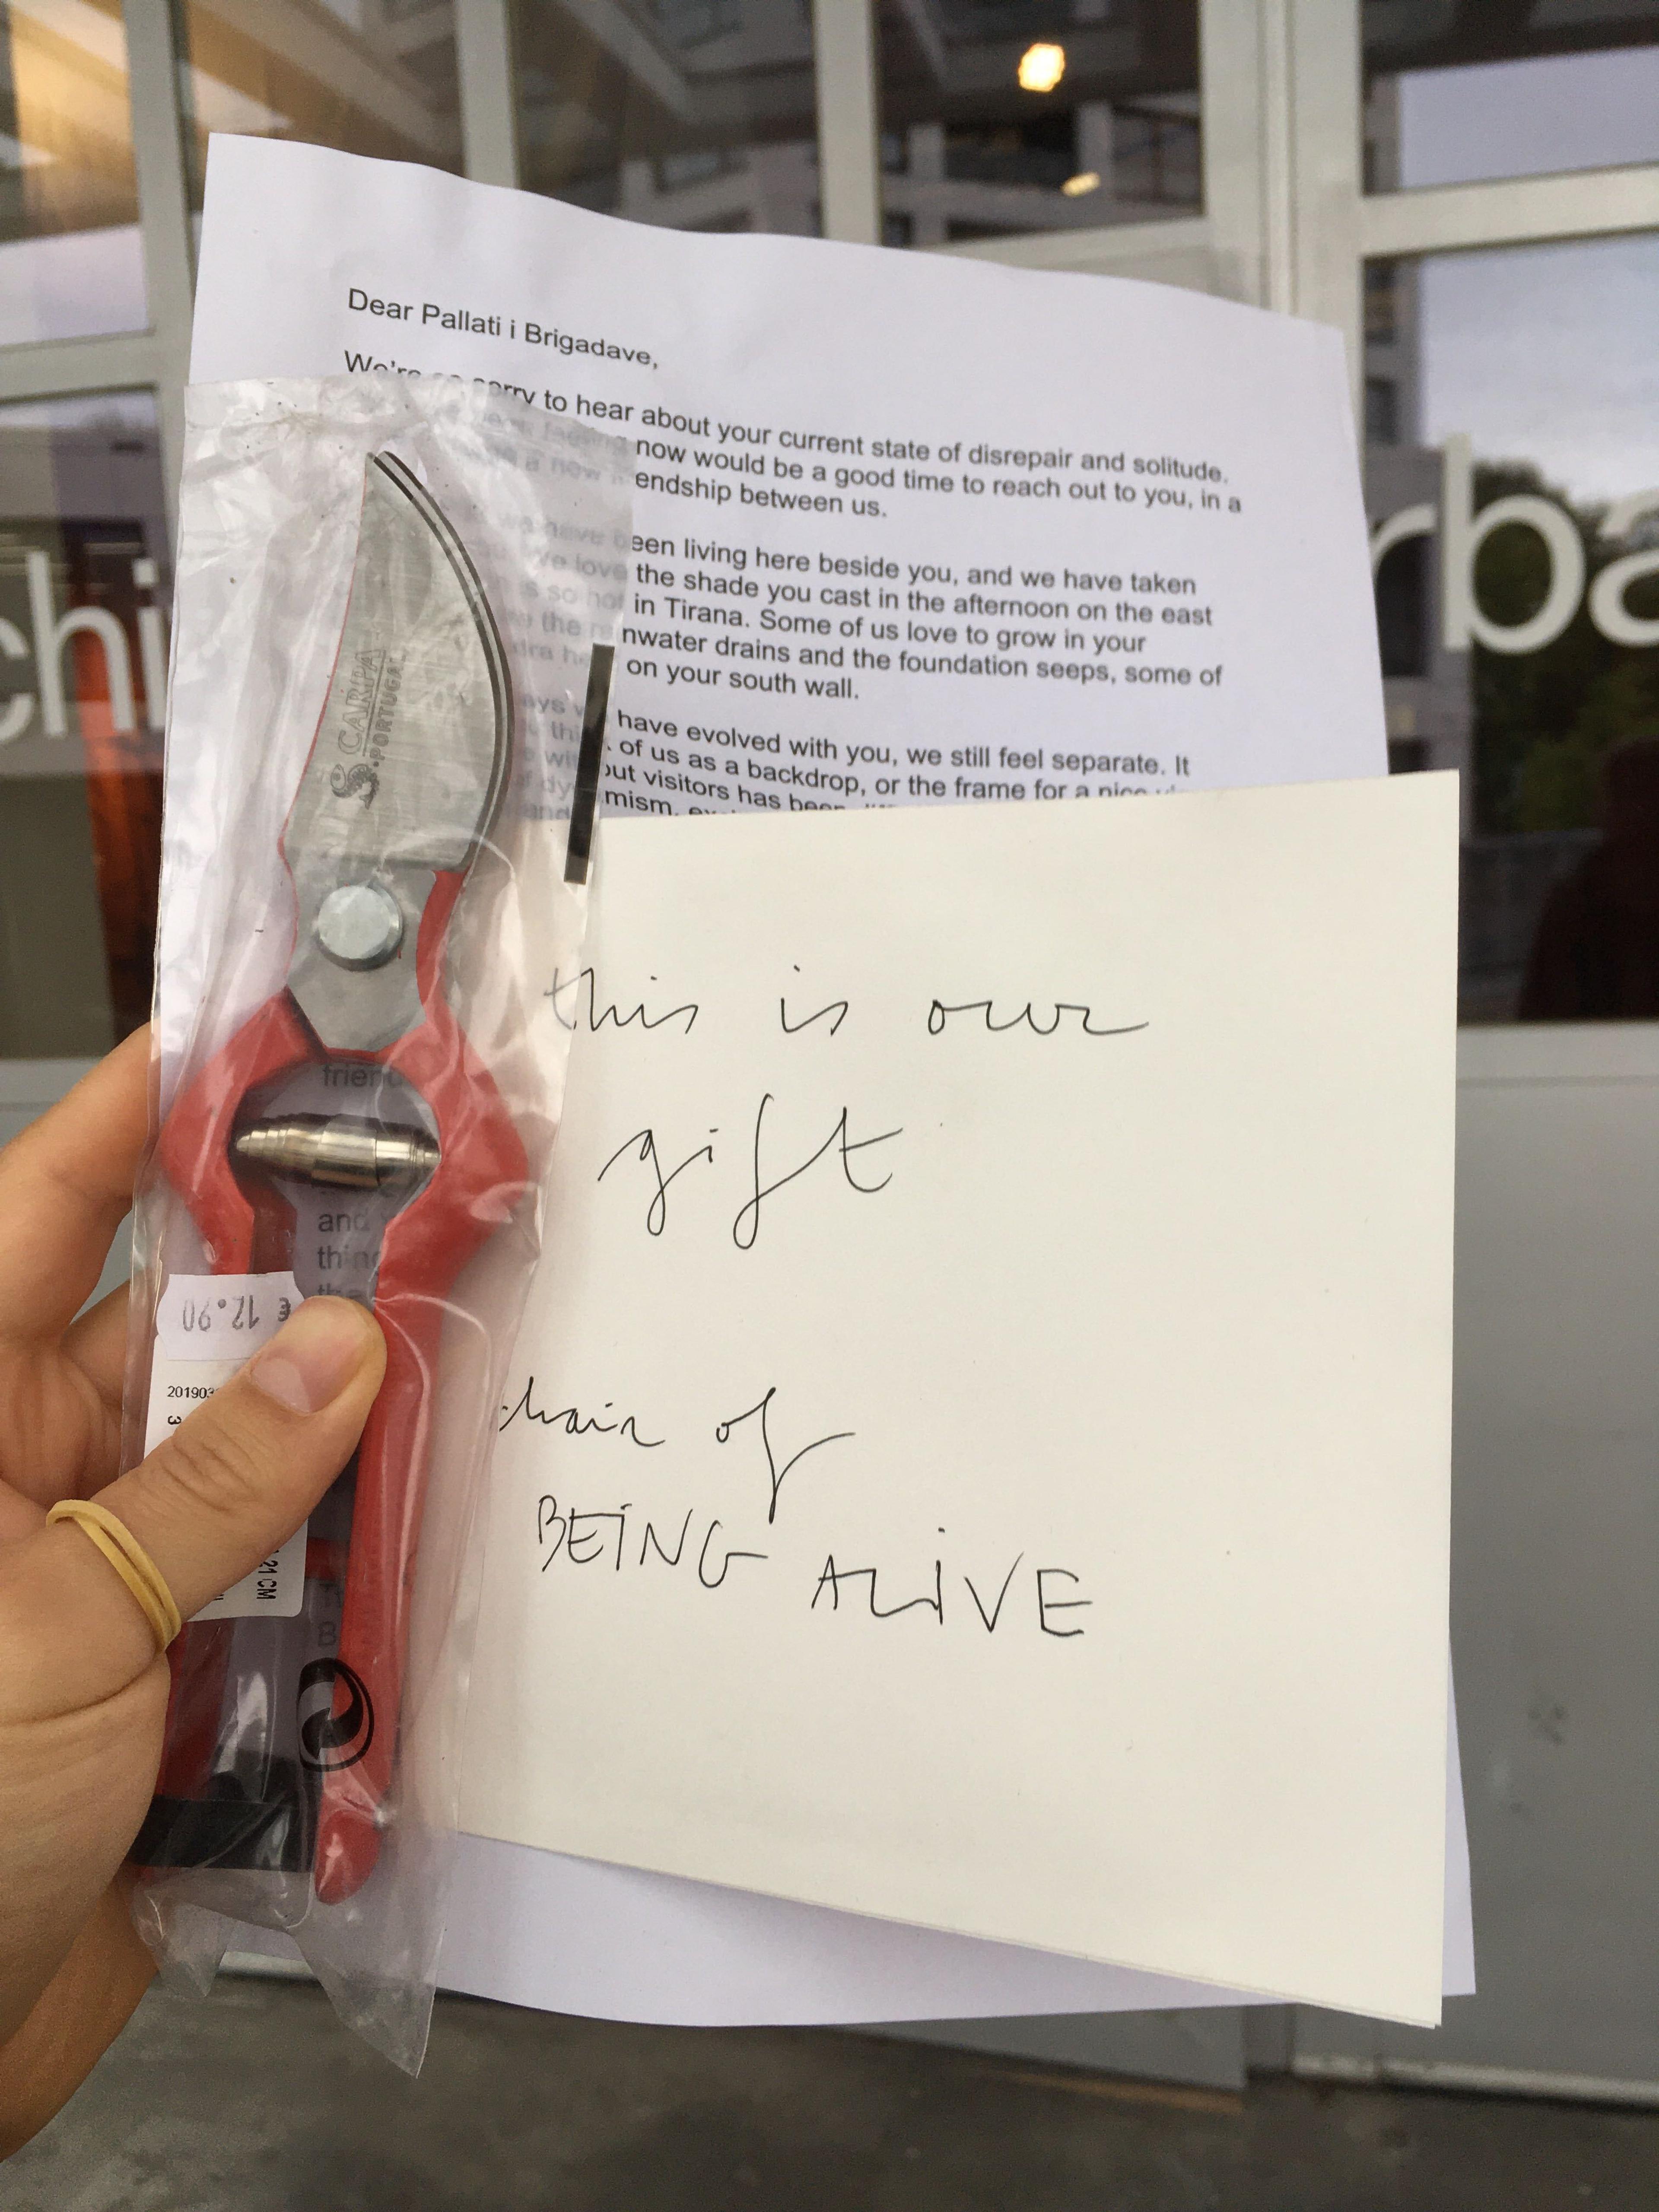 Dear Pallati i Brigadave,
sorry to hear about your current state of disrepair and solitude.
now would be a good time to reach out to you, in a
a new endship between us.
have been living here beside you, and we have taken
love the shade you cast in the afternoon on the east
is so hot in Tirana. Some of us love to grow in your
the nwater drains and the foundation seeps, some of
on your south wall.
have evolved with you, we still feel separate. It
of us as a backdrop, or the frame for a nice
out visitors has been
and mism,
CARPA
PORTUGAL
this is our
gift
hair of
BEING ALIVE
friend
and
thing
the
€ 12.90
201903
3
21 CM
B
chi
rba